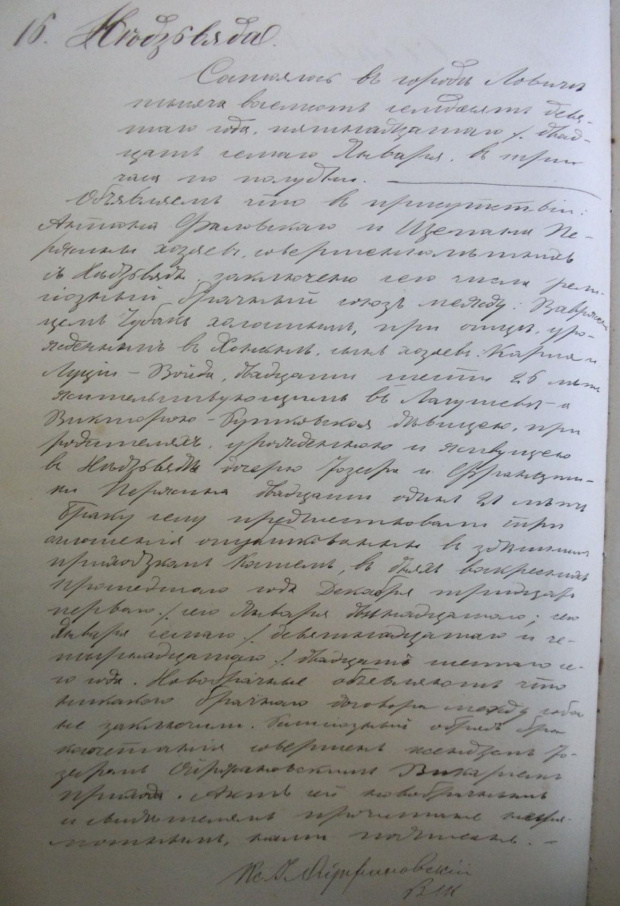 16. Нѣдзвяда.
Состоялось въ городѣ Ловичѣ
тысяча восемьсотъ семьдесятъ девя-
таго года, пятнадцатаго / двад-
цать седьмаго Января, въ три
часа по полудни.
Объявляемъ что въ присутствіи:
Антонія и Щепана Пе-
хозяевъ, совершеннолѣтнихъ
съ Нѣдзвяды, заключено сего числа рели-
гіозный брачный союзъ между: Вавржен-
цемъ холостымъ, при отцѣ, уро-
жденнымъ въ сынъ хозяевъ, Карла и
Луціи Войда, двадцати шести 26 лѣтъ
жительствующимъ въ Лагушевѣ а
Викторіею дѣвицею, при
родителяхъ, урожденною и живущею
въ Нѣдзвядѣ дочерю Іозефа и Францишки
двадцати одинъ 21 лѣтъ
Браку сему предшествовали три
оглашенія опубликованныя въ здѣшнемъ
приходскомъ Костелѣ, въ дняхъ воскресныхъ
прошедшаго года Декабря тридцать
перваго / сего Января двѣнадцатаго; сего
Января седьмаго / девятнадцатаго и че-
тырнадцатаго / двадцать шестаго се-
го года. Новобрачные объявляютъ что
никакого брачнаго договора между собою
не заключили. Религіозный обрядъ брако-
сочетанія совершенъ ксендзомъ Іо-
зефомъ Викаріемъ
прихода. Актъ сей новобрачнымъ
и свидѣтелямъ прочитанъ негра-
мотнымъ, нами подписанъ. —
Кс. І.